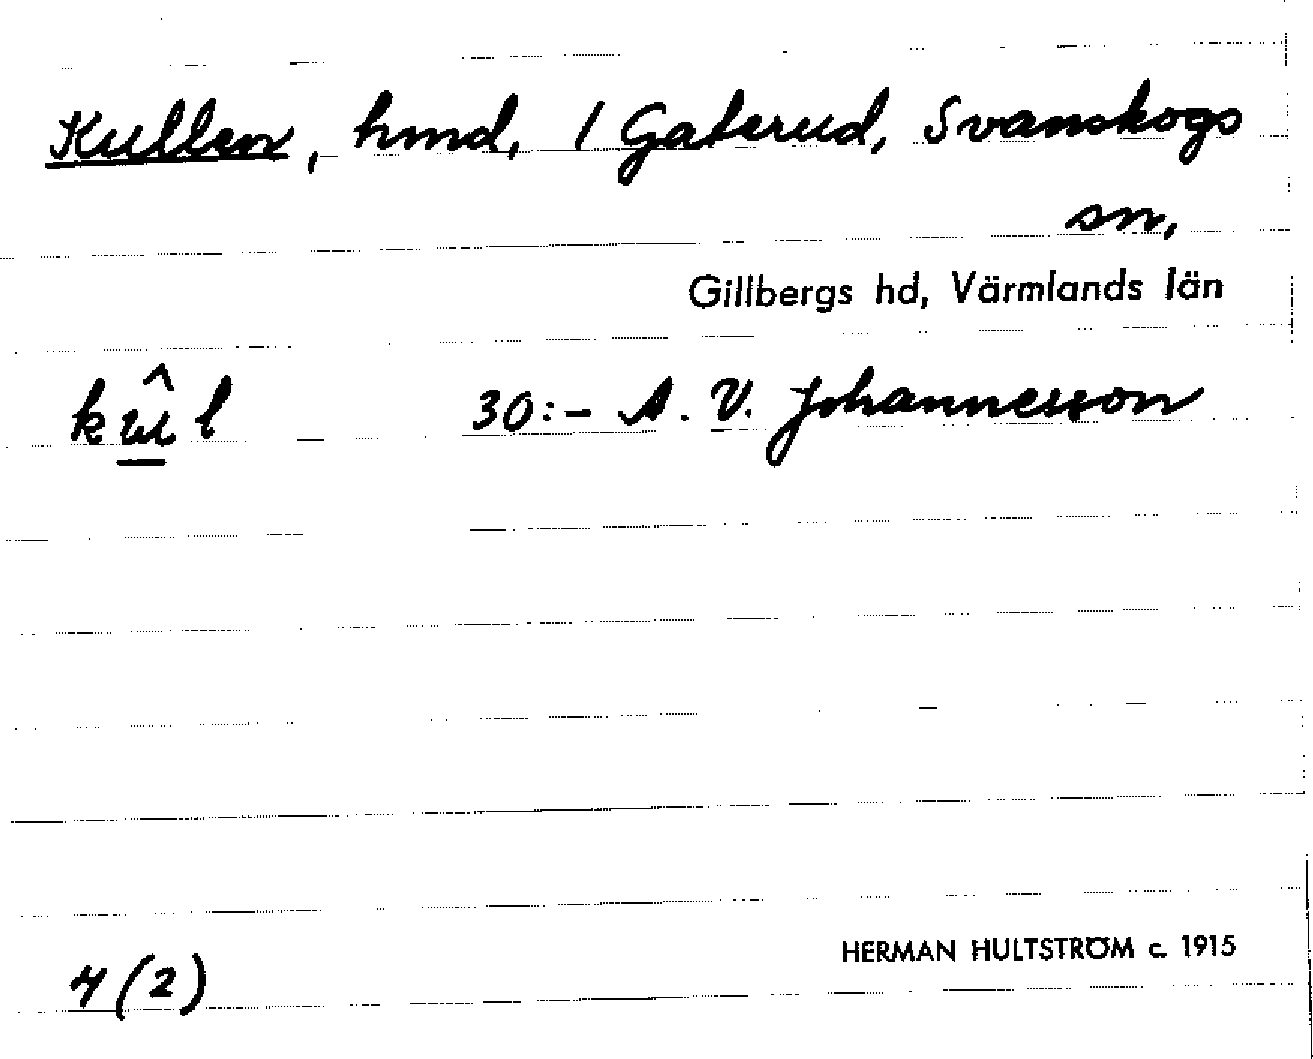 Kullen, hmd, 1 Gaterud, Svanskogs
sn,
Gillbergs hd, Värmlands län
30:- A. V. Johannesson
4(2)
HERMAN HULTSTRÖM c. 1915